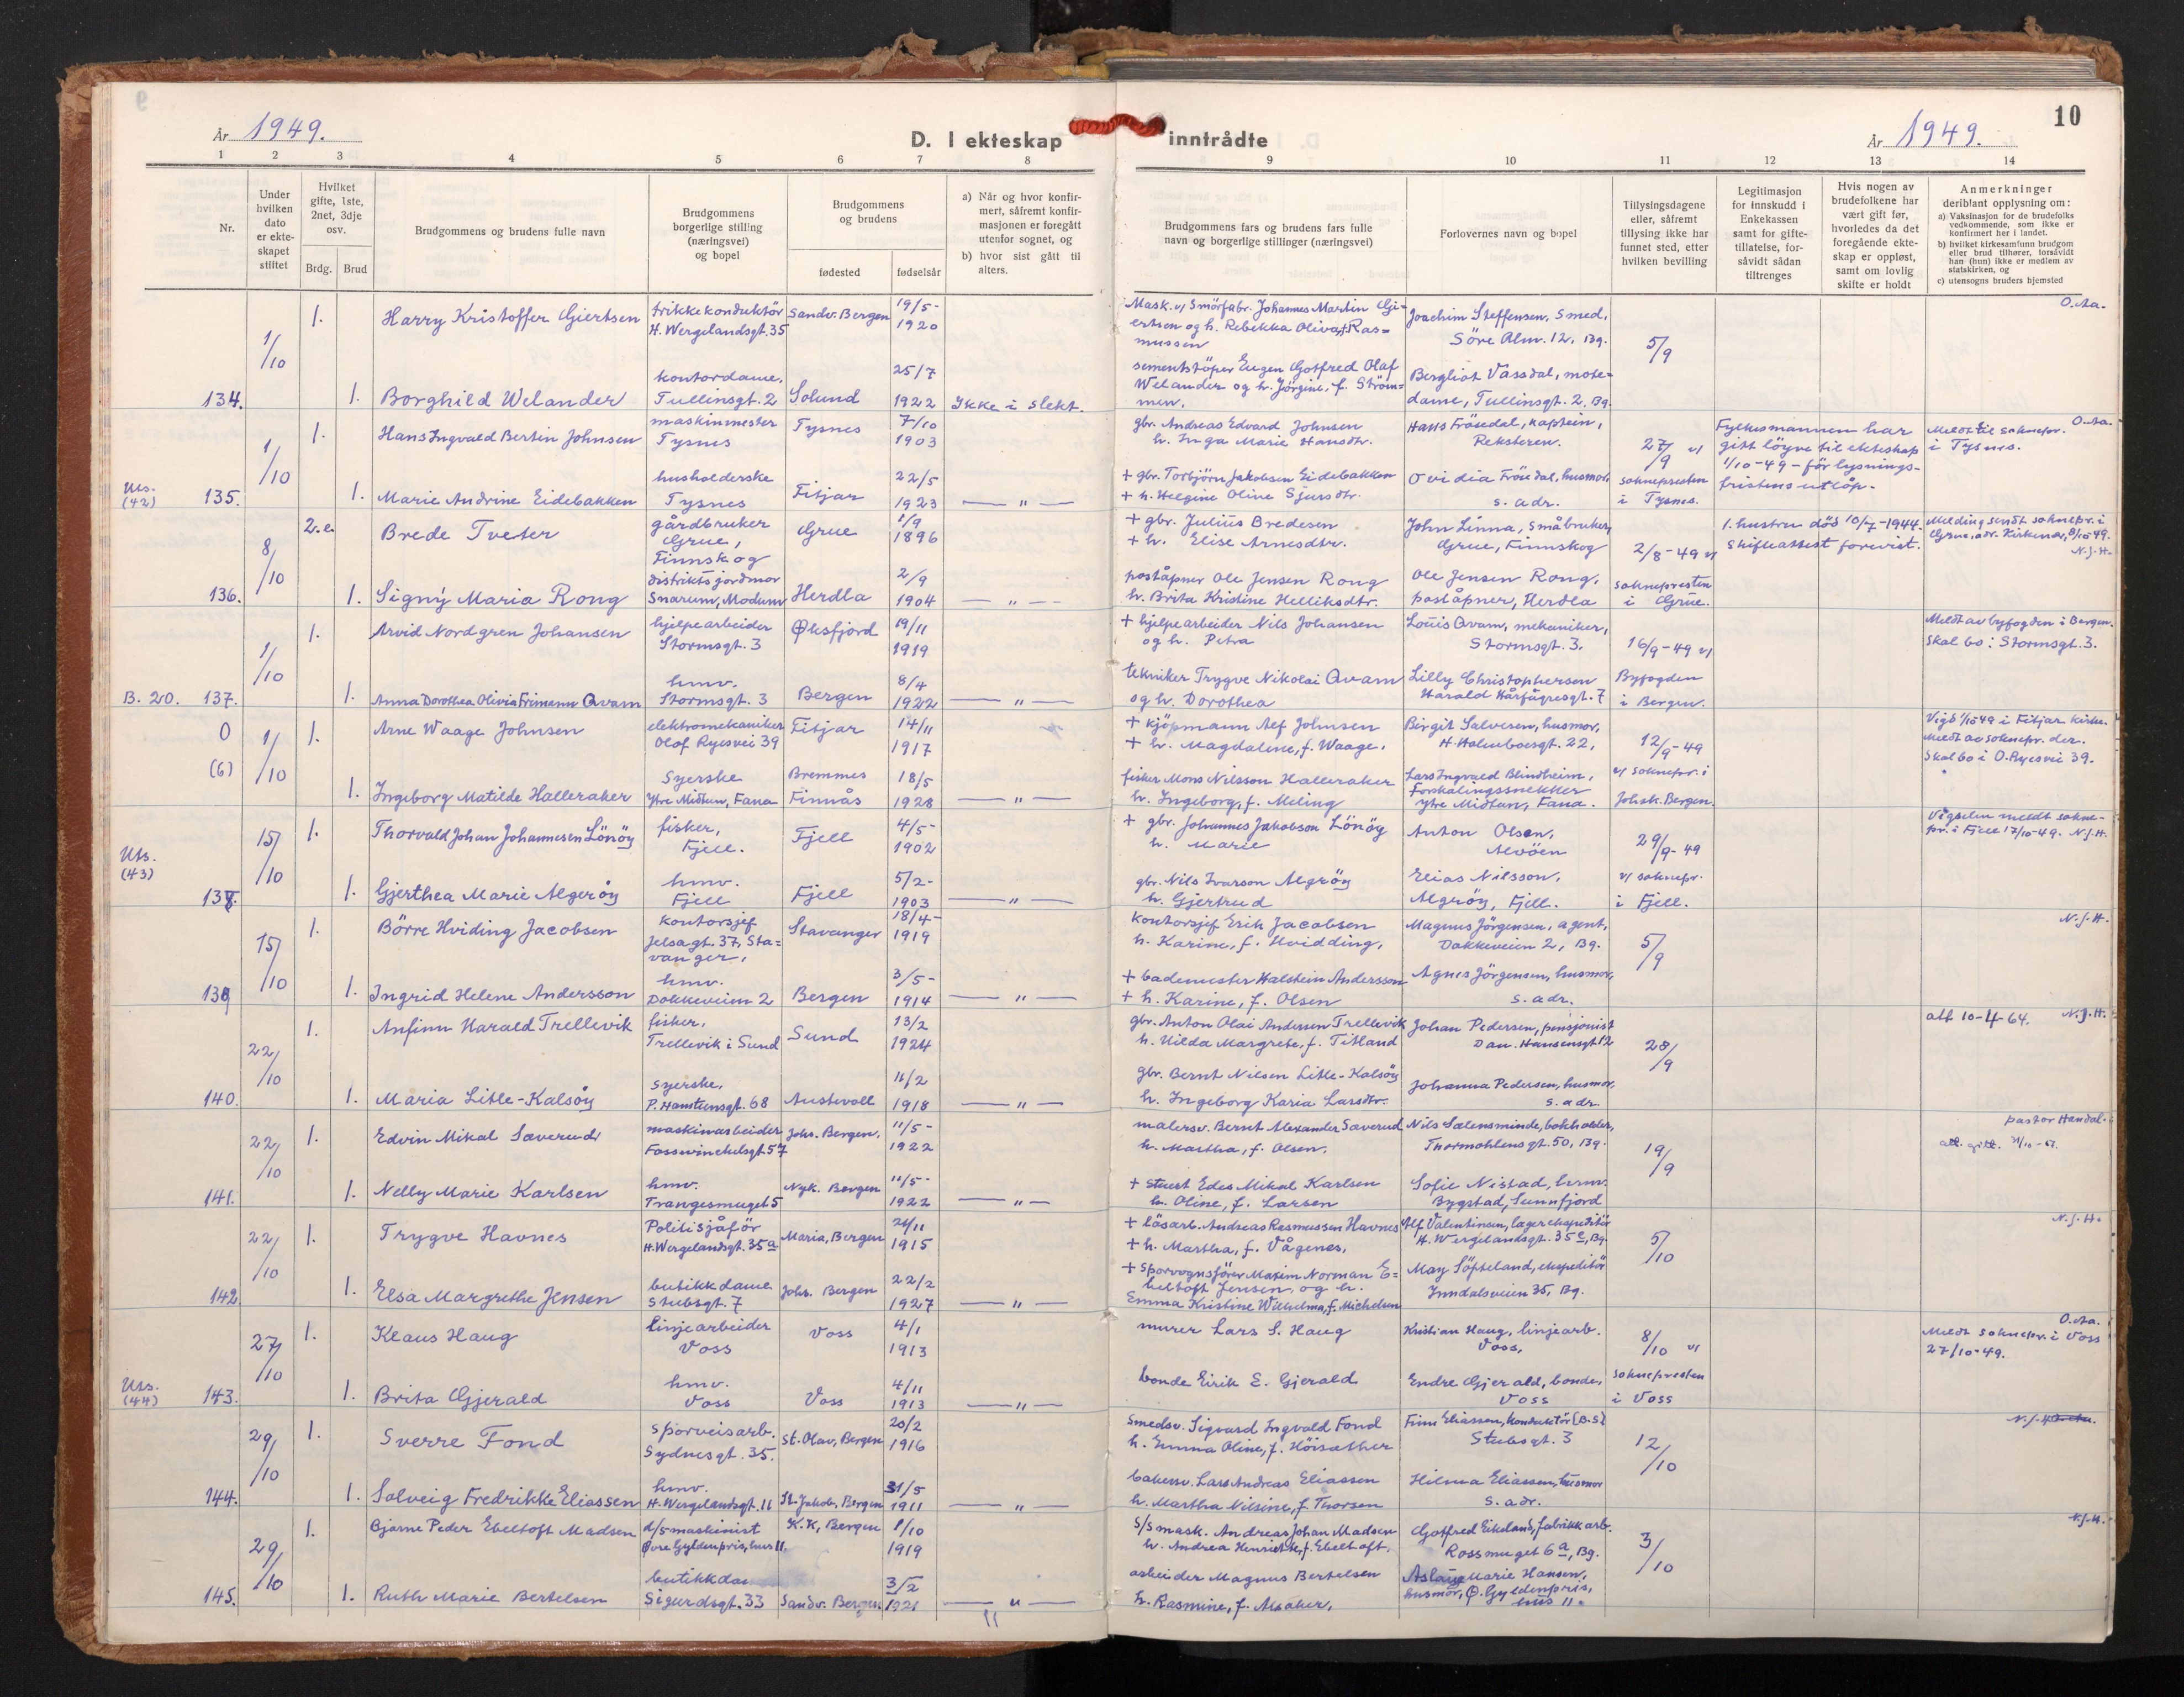 År 1949.
D. I ekteskap
inntrådte
År 1949.
10
1 2 3 4 5 6 7 8 9 10 11 12 13 14
Nr.
Under hvilken dato er ekteskapet stiftet
Hvilket gifte, 1ste, 2net, 3dje osv.
Brdg. Brud
Brudgommens og brudens fulle navn
Brudgommens borgerlige stilling (næringsvei) og bopel
Brudgommens og brudens
fødested
fødselsår
a) Når og hvor konfirmert, såfremt konfirmasjonen er foregått utenfor sognet, og
b) hvor sist gått til alters.
Brudgommens fars og brudens fars fulle navn og borgerlige stillinger (næringsvei)
Forlovernes navn og bopel
Tillysingsdagene eller, såfremt tillysing ikke har funnet sted, etter hvilken bevilling
Legitimasjon for innskudd i Enkekassen samt for giftetillatelse, forsåvidt sådan tiltrenges
Hvis nogen av brudefolkene har vært gift før, hvorledes da det foregående ekteskap er oppløst, samt om lovlig skifte er holdt
Anmerkninger
deriblant opplysning om:
a) Vaksinasjon for de brudefolks vedkommende, som ikke er konfirmert her i landet.
b) hvilket kirkesamfunn brudgom eller brud tilhører, forsåvidt han (hun) ikke er medlem av statskirken, og
c) utensogns bruders hjemsted
134. 1/10
1. Harry Kristoffer Gjertsen
trikkekonduktör H. Wergelandsgt. 35
Sandv. Bergen
19/5- 1920
Mask. v/ Smörfabr. Johannes Martin Gjertsen og h. Rebekka Oliva, f. Rasmussen
Joachim Steffensen, smed, Söre Alm. 12, Bg.
5/9
O.Aa.
1. Borghild Welander
kontordame, Tullinsgt. 2
Solund
25/7 1922
Ikke i slekt.
sementstöper Eugen Gotfred Olaf Welander og h. Jörgine, f. Strömmen.
Bergliot Vassdal, motedame, Tullinsgt. 2, Bg.
Uts. (42) 135. 1/10
1. Hans Ingvald Bertin Johnsen
maskinmester Tysnes
Tysnes
7/10 1903
gbr. Andreas Edvard Johnsen
h. Inga Marie Hansdtr.
Hans Fröisdal, kaptein, Reksteren.
27/9 v/ soknepresten i Tysnes.
Fylkesmannen har gitt löyve til ekteskap 1/10-49 - för lysningsfristens utlöp.
Meldt til soknepr. i Tysnes.
O.Aa.
1. Marie Andrine Eidebakken
husholderske Tysnes
Fitjar
22/5 1923
— " —
+ gbr. Torbjörn Jakobsen Eidebakken
+ h. Helgine Oline Sjursdtr.
Ovidia Fröisdal, husmor, s. adr.
136. 8/10
2.e. Brede Tveter
gårdbruker Grue, Finnskog
Grue
1/9 1896
+ gbr. Julius Bredesen
+ h. Elise Arnesdtr.
John Linna, småbruker, Grue, Finnskog
2/8-49 v/ soknepresten i Grue.
1. hustru död 10/7-1944. Skifteattest forevist.
Melding sendt soknepr. i Grue, adr. Kirkenær, 8/10-49. N.J.H.
1. Signy Maria Rong
distriktsjordmor Snarum, Modum
Herdla
2/9 1904
— " —
poståpner Ole Jensen Rong
h. Brita Kristine Helliksdtr.
Ole Jensen Rong, poståpner, Herdla
B. 20. 137. 1/10
1. Arvid Nordgren Johansen
hjelpearbeider Stormsgt. 3
Øksfjord
19/11 1919
+ hjelpearbeider Nils Johansen og h. Petra
Louis Qvam, mekaniker, Stormsgt. 3.
16/9-49 v/ Byfogden i Bergen.
Meldt av byfogden i Bergen. Skal bo: Stormsgt. 3.
1. Anna Dorothea Olivia Frimann Qvam
hmv. Stormsgt. 3
Bergen
8/4 1922
— " —
tekniker Trygve Nikolai Qvam og h. Dorothea
Lilly Christophersen Harald Hårfagresgt. 7
0 (6) 1/10
1. Arne Waage Johnsen
elektromekaniker Olaf Ryesvei 39
Fitjar
14/11 1917
+ kjöpmann Alf Johnsen
+ h. Magdalene, f. Waage.
Birgit Salvesen, husmor, H. Holmboesgt. 22,
12/9-49 v/ soknepr. i Johsk. Bergen.
Vigd 1/10 49 i Fitjar kirke. Meldt av soknepr. der. Skal bo i O. Ryesvei 39.
1. Ingeborg Matilde Halleraker
Syerske Ytre Midtun, Fana
Bremnes Finnås
18/5 1928
— " —
fisker Mons Nilsson Halleraker
h. Ingeborg, f. Meling
Lars Ingvald Blindheim, Forskalingssnekker Ytre Midtun, Fana.
Uts. (43) 138. 15/10
1. Thorvald Johan Johannesen Lönöy
fisker, Fjell.
Fjell
4/5- 1902
+ gbr. Johannes Jakobson Lönöy
h. Marie
Anton Olsen, Alvöen
29/9-49 v/ soknepr. i Fjell.
Vigselen meldt soknepr. i Fjell 17/10-49. N.J.H.
1. Gjerthea Marie Algeröy
hmv. Fjell
Fjell
5/2- 1903
— " —
gbr. Nils Ivarson Algröy
h. Gjertrud
Elias Nilsson, Algröy, Fjell.
139. 15/10
1. Börre Hviding Jacobsen
kontorsjef Jelsagt. 37, Stavanger,
Stavanger
18/4- 1919
kontorsjef Erik Jacobsen
h. Karine, f. Hvidding,
Magnus Jörgensen, agent, Dokkeveien 2, Bg.
5/9
N.J.H.
1. Ingrid Helene Andersson
hmv. Dokkeveien 2
Bergen
3/5- 1914
— " —
+ bademester Halstein Andersson
+ h. Karine, f. Olsen
Agnes Jörgensen, husmor, s. adr.
140. 22/10
1. Anfinn Harald Trellevik
fisker, Trellevik i Sund
Sund
13/2 1924
gbr. Anton Olai Andersen Trellevik
h. Hilda Margrete, f. Titland
Johan Pedersen, pensjonist Dan. Hansensgt 12
28/9
att 10-4-64.
N.J.H.
1. Maria Litle-Kalsöy
syerske, P. Hansteensgt. 68
Austevoll
11/2 1918
— " —
gbr. Bernt Nilsen Litle-Kalsöy
h. Ingeborg Karia Larsdtr.
Johanna Pedersen, husmor, s. adr.
141. 22/10
1. Edvin Mikal Sæverud
maskinarbeider Fosswinckelsgt 57
Johs. Bergen.
11/5- 1922
malersv. Bernt Alexander Sæverud
h. Martha, f. Olsen.
Nils Sælensminde, bokholder, Thormøhlensgt. 50, Bg.
19/9
pastor Handal.
att. gitt.
1. Nelly Marie Karlsen
hmv. Trangesmuget 5
Nyk. Bergen
11/5- 1922
— " —
+ stuert Edes Mikal Karlsen
h. Oline, f. Larsen
Sofie Nistad, husm. Bygstad, Sunnfjord
142 22/10
1. Trygve Havnes
Politisjåför H. Wergelandsgt. 35a
Maria, Bergen
24/11 1915
+ lösarb. Andreas Rasmussen Havnes
+ h. Martha, f. Vågenes,
Alf Valentinsen, lagerekspeditör H. Wergelandsgt. 35c, Bg.
5/10
N.J.H.
1. Elsa Margrethe Jensen
butikkdame Stubsgt. 7
Johs. Bergen
22/2 1927
— " —
+ sporvognsförer Maxim Norman Ebeltoft Jensen, og h. Emma Kristine Wilhelma, f. Michelsen
May Söfteland, ekspeditör Inndalsveien 35, Bg.
Uts. (44) 143. 27/10
1. Klaus Haug
linjearbeider Voss
Voss
4/1 1913
murer Lars S. Haug
Kristian Haug, linjearb. Voss,
8/10 v/ soknepresten i Voss
Meldt soknepr. i Voss 27/10-49.
O.Aa.
1. Brita Gjerald
hmv. Voss
Voss
4/11 1913
— " —
bonde Eirik E. Gjerald
Endre Gjerald, bonde, Voss
144. 29/10
1. Sverre Fond
sporveisarb. Sydnesgt. 35.
St. Olav, Bergen
20/2 1916
smedsv. Sigvard Ingvald Fond
h. Emma Oline, f. Höisæther
Finn Eliassen, konduktör (B.S) Stubsgt. 3
12/10
N.J.H.
1. Solveig Fredrikke Eliassen
hmv. H. Wergelandsgt. 11
St. Jakob, Bergen
31/5 1911
— " —
bakersv. Lars Andreas Eliassen
h. Martha Nilsine, f. Thorsen
Hilma Eliassen, husmor s. adr.
145. 29/10
1. Bjarne Peder Ebeltoft Madsen
d/s maskinist Øvre Gyldenpris, hus 11.
K.K, Bergen
1/10 1919
S/S mask. Andreas Johan Madsen
h. Andrea Henriette, f. Ebeltoft.
Gotfred Eikeland, fabrikkarb. Rossmuget 6a, Bg.
3/10
N.J.H.
1. Ruth Marie Bertelsen
butikkda Sigurdsgt. 33
Sandv. Bergen
3/2 1921
— " —
arbeider Magnus Bertelsen
h. Rasmine, f. Alsaker,
Aslaug Marie Hansen, husmor, Ø. Gyldenpris, hus 11.